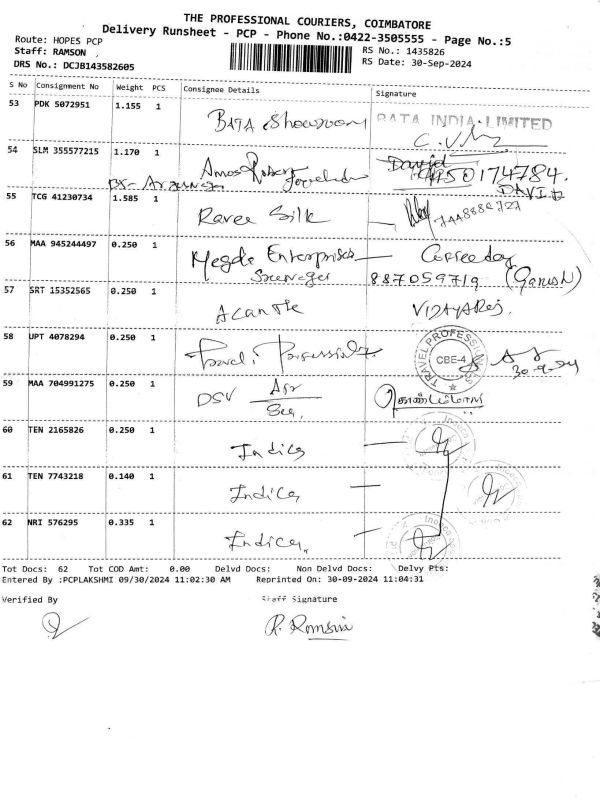 THE PROFESSIONAL COURIERS, COIMBATORE
Delivery Runsheet - PCP - Phone No.:0422-3505555 - Page No.:5
Route: HOPES PCP
RS No.: 1435826
Staff: RAMSON
RS Date: 30-Sep-2024
DRS No.: DCJB143582605
S No Consignment No Weight PCS Consignee Details Signature
53 PDK 5072951 1.155 1 BATA Showroom BATA INDIA LIMITED
54 SLM 355577215 1.170 1 Amos David 174784.
DAVID
55 TCG 41230734 1.585 1 Ravee Silk
56 MAA 945244497 0.250 1 Megda Enterprises Coffee day
887059719 (Ganesh)
57 SRT 15352565 0.250 1 Acantle VIJAYARaj.
58 UPT 4078294 0.250 1 TRAVEL PROFESSIONALS CBE-4
30-9-24
59 MAA 704991275 0.250 1 DSV Air
Sea,
60 TEN 2165826 0.250 1 Indica
61 TEN 7743218 0.140 1 Indica
62 NRI 576295 0.335 1 Indica,
Tot Docs: 62 Tot COD Amt: 0.00 Delvd Docs: Non Delvd Docs: Delvy Pts:
Entered By :PCPLAKSHMI 09/30/2024 11:02:30 AM Reprinted On: 30-09-2024 11:04:31
Verified By Staff Signature
R. Ramson